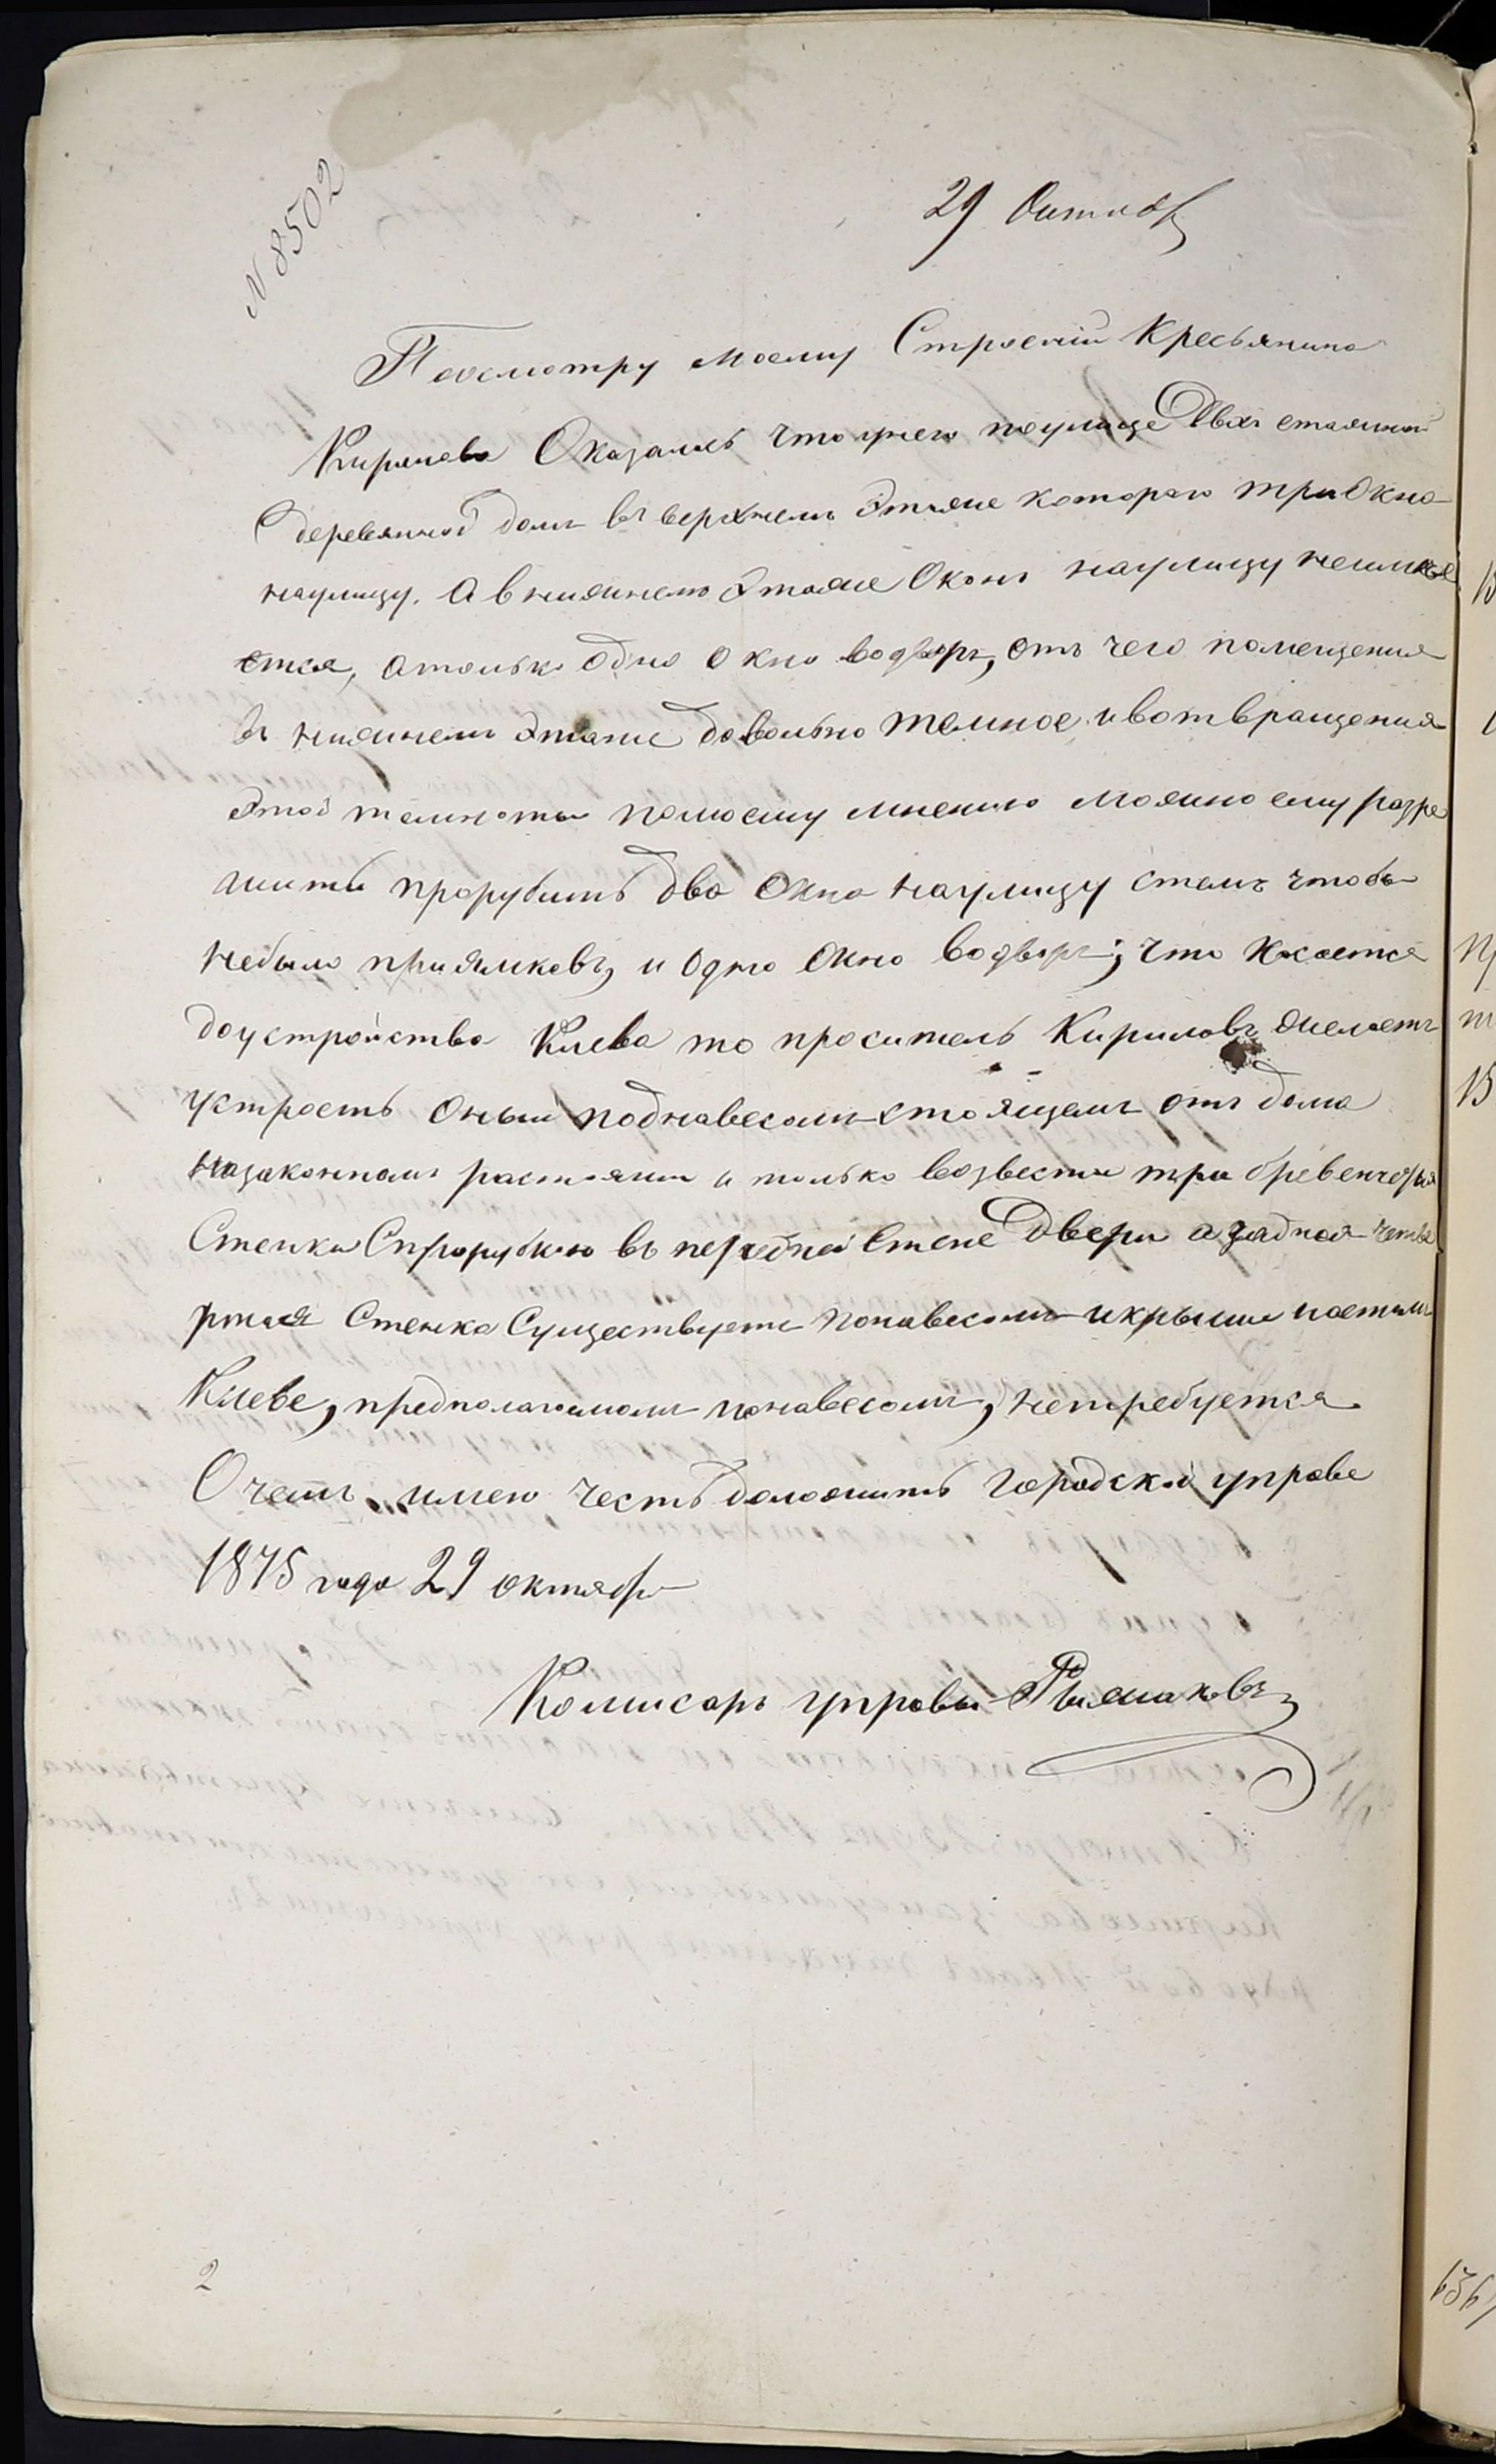 N 8502
29 Октяб
Поосмотру моему Строений Кресьянина
Кирилова Оказалось что унего поулице Двух етажной
деревянной дом въ верхнем Этаже которого три Окна
наулицу. а в нижнемъ Этаже Оконъ наулицу неимее
ется, атолько одно окно водворъ, отъ чего помещения
въ нижнемъ Этаже довольно темное ивотвращения
Этой темноты помоему мнению можно ему разре
шить прорубить два Окна наулицу стемъ чтобы
небыло приямковъ, и одно Окно водворъ; что касается
доустройства Хлева то проситель Кириловъ желаетъ
устроеть оный поднавесомъ стоящемъ отъ дома
назаконномъ растоянии и только возвести три бревенчетыя
Стенки Спрорубкою въ передней Стене Двери а задная четве
ртая Стенка Существуетъ понавесомъ икрыши поетому
Хлеве, предполагаемомъ понавесомъ, нетребуется
О чемъ имею честь доложить городской управе
1875 года 29 октября
Комисаръ управы
2